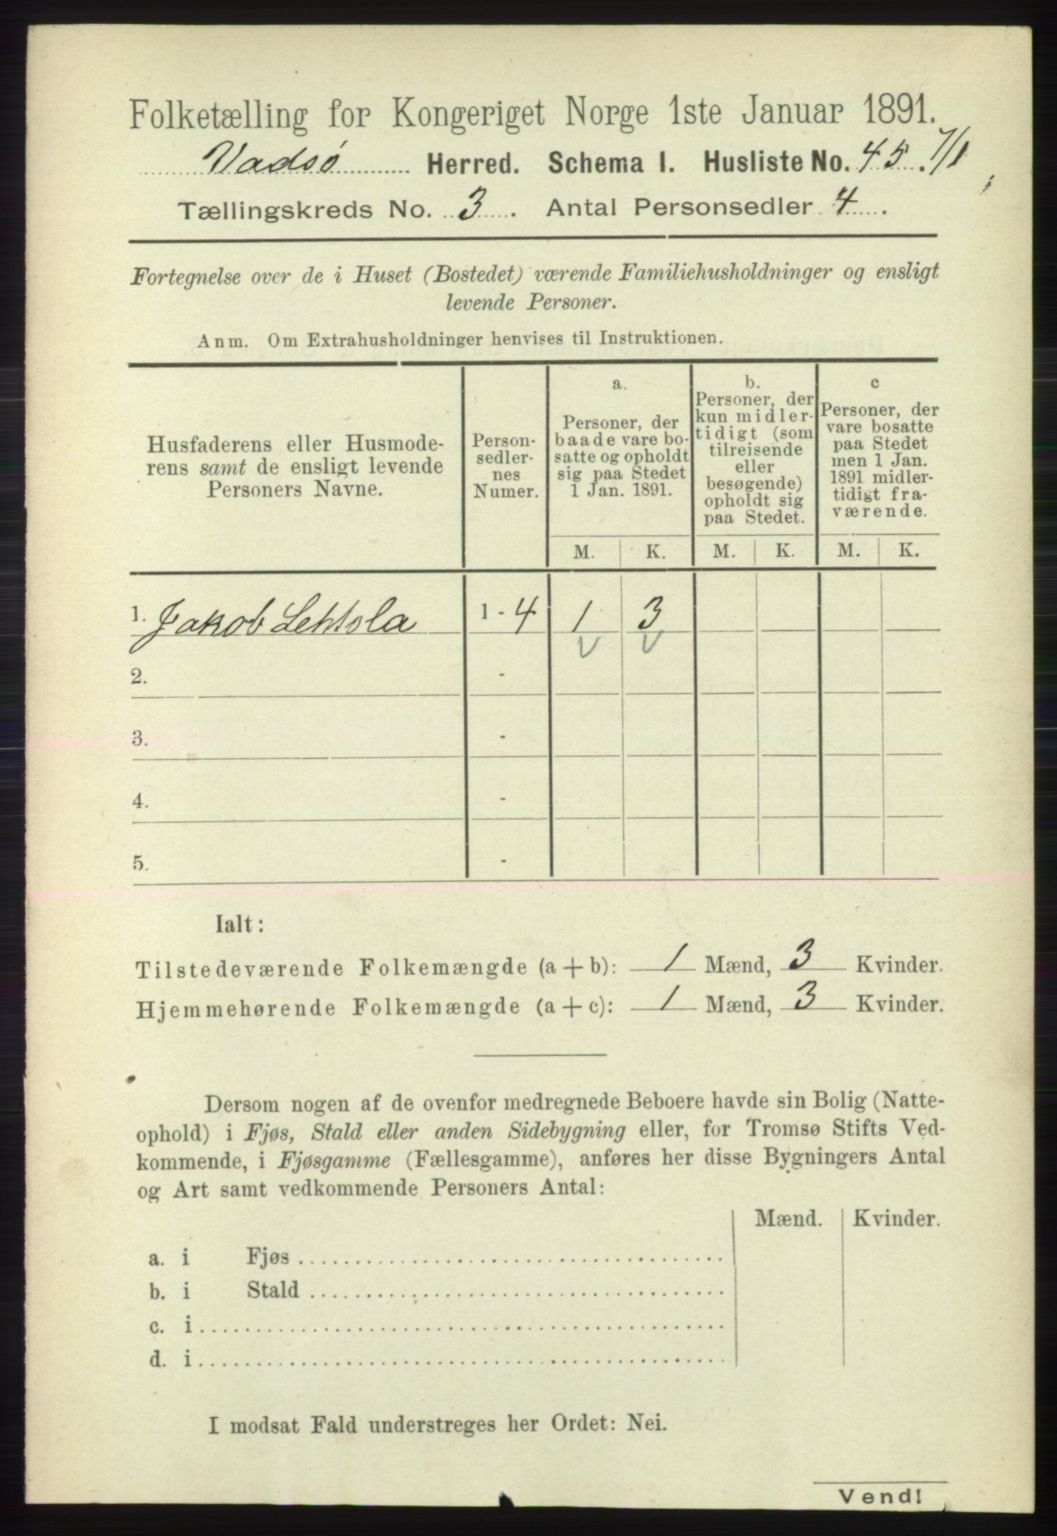 Folketælling for Kongeriget Norge 1ste Januar 1891.
Vadsø Herred. Schema I. Husliste No. 45. 7/1
Tællingskreds No. 3. Antal Personsedler 4.
Fortegnelse over de i Huset (Bostedet) værende Familiehusholdninger og ensligt
levende Personer.
Anm. Om Extrahusholdninger henvises til Instruktionen.
Husfaderens eller Husmode-
rens samt de ensligt levende
Personers Navne.
Person-
sedler-
nes
Numer.
a.
Personer, der
baade vare bo-
satte og opholdt
sig paa Stedet
1 Jan. 1891.
b.
Personer, der
kun midler-
tidigt (som
tilreisende
eller
besøgende)
opholdt sig
paa Stedet.
c
Personer, der
vare bosatte
paa Stedet
men 1 Jan.
1891 midler-
tidigt fra-
værende.
M. K. M. K. M. K.
1. Jakob Lehtola 1 - 4 1 3
2. -
3. -
4. -
5. -
Ialt:
Tilstedeværende Folkemængde (a + b): 1 Mænd, 3 Kvinder.
Hjemmehørende Folkemængde (a + c): 1 Mænd, 3 Kvinder.
Dersom nogen af de ovenfor medregnede Beboere havde sin Bolig (Natte-
ophold) i Fjøs, Stald eller anden Sidebygning eller, for Tromsø Stifts Ved-
kommende, i Fjøsgamme (Fællesgamme), anføres her disse Bygningers Antal
og Art samt vedkommende Personers Antal:
Mænd. Kvinder.
a. i Fjøs
b. i Stald
c. i
d. i
I modsat Fald understreges her Ordet: Nei.
Vend!